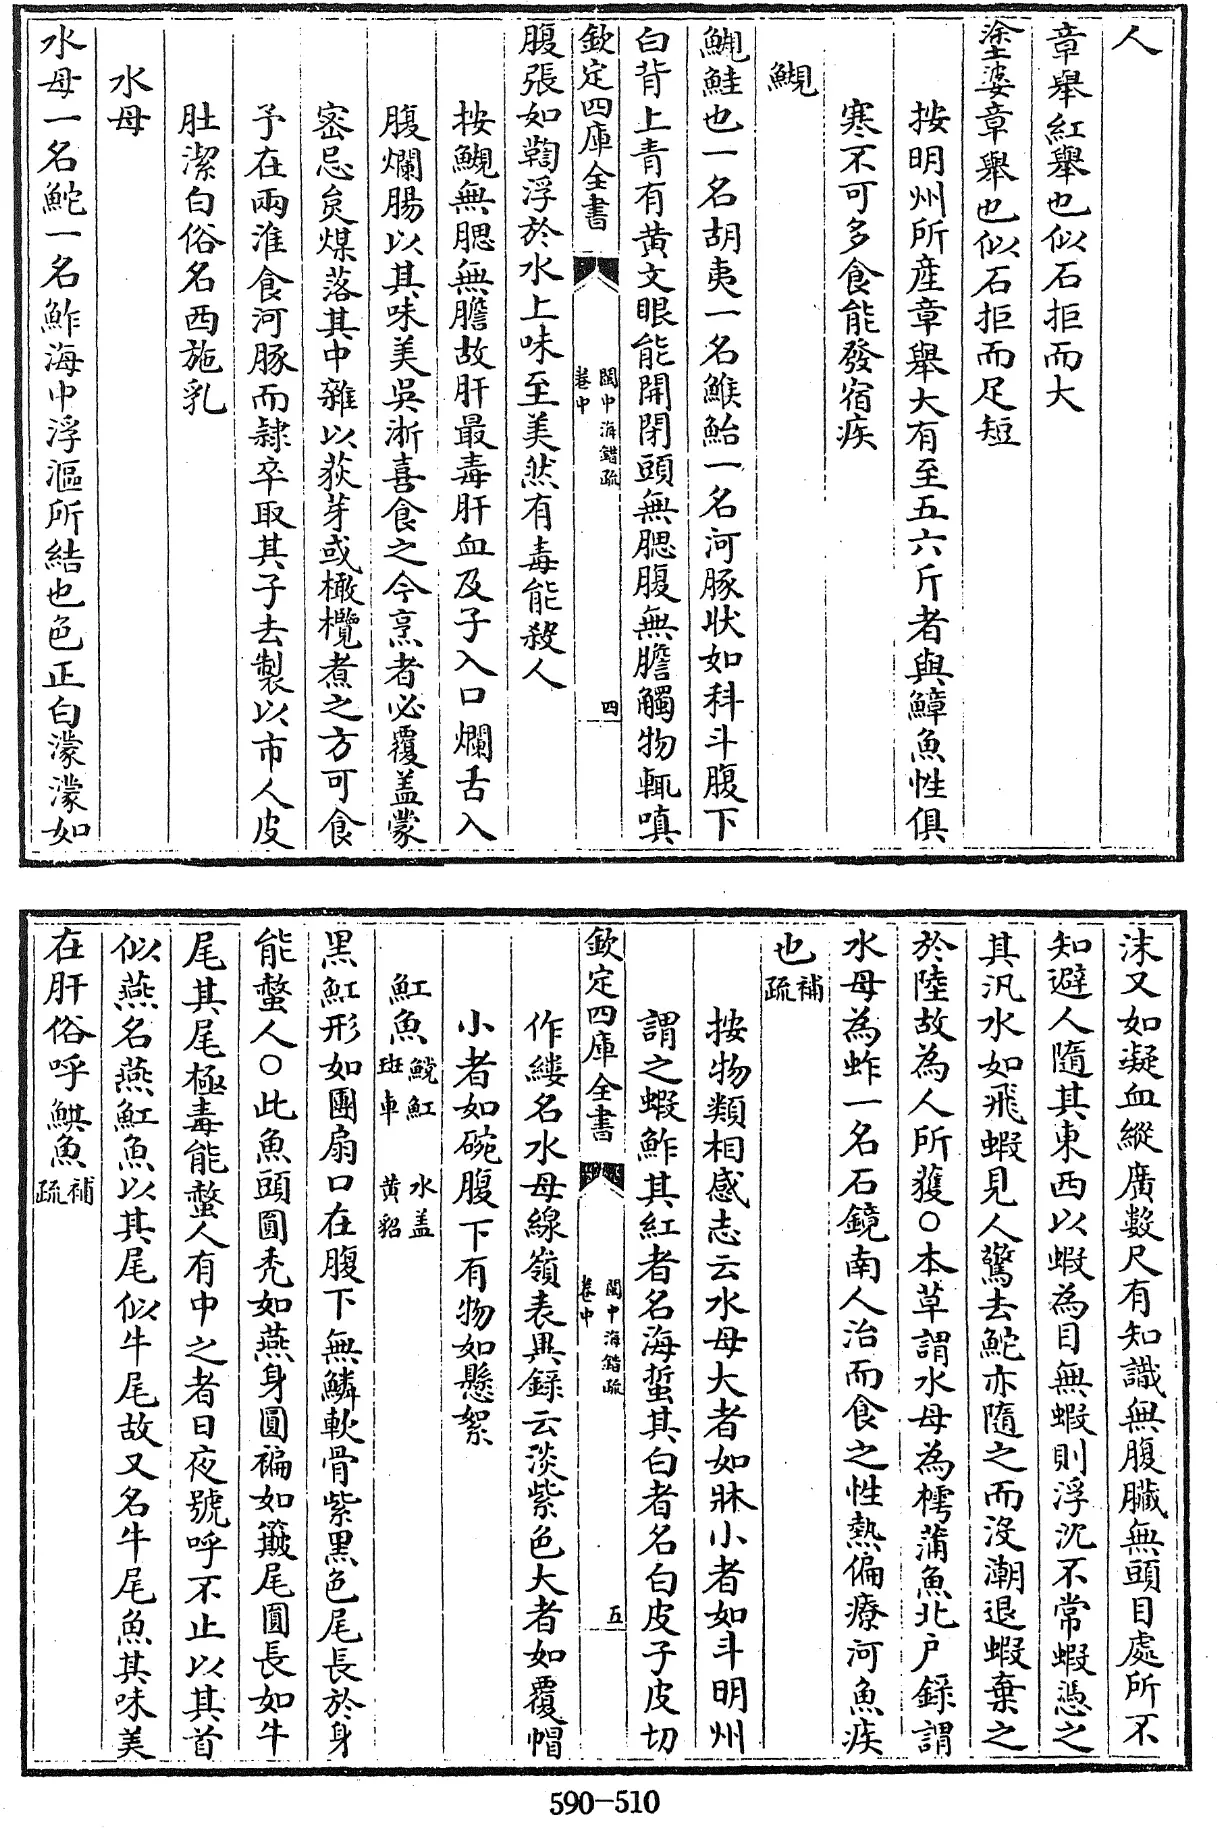 人
章舉紅舉也似石拒而大
塗婆章舉也似石拒而足短
按明州所産章舉大有至五六斤者與鱆魚性俱
寒不可多食能發宿疾
鯢
鯢鮭也一名胡夷一名鯸鮐一名河豚狀如科斗腹下
白背上青有黄文眼能開閉頭無腮腹無膽觸物輒嗔
欽定四庫全書
閩中海錯疏
卷中
四
腹張如鞠浮於水上味至美然有毒能殺人
按鯢無腮無膽故肝最毒肝血及子入口爛舌入
腹爛腸以其味美吳浙喜食之今烹者必覆盖蒙
密忌炱煤落其中雜以荻芽或橄欖煮之方可食
予在兩淮食河豚而隸卒取其子去製以市人皮
肚潔白俗名西施乳
水母
水母一名鮀一名鮓海中浮漚所結也色正白濛濛如
沫又如凝血縱廣數尺有知識無腹臟無頭目處所不
知避人隨其東西以蝦為目無蝦則浮沉不常蝦憑之
其汎水如飛蝦見人驚去鮀亦隨之而沒潮退蝦棄之
於陸故為人所獲○本草謂水母為樗蒲魚北户録謂
水母為蚱一名石鏡南人治而食之性熱偏療河魚疾
也補疏
按物類相感志云水母大者如牀小者如斗明州
謂之蝦鮓其紅者名海蜇其白者名白皮子皮切
欽定四庫全書
閩中海錯疏
卷中
五
作縷名水母線嶺表異録云淡紫色大者如覆帽
小者如碗腹下有物如懸絮
魟魚 鯇魟 班車 水盖 黄貂
黒魟形如團扇口在腹下無鱗軟骨紫黒色尾長於身
能螫人○此魚頭圓秃如燕身圓褊如簸尾圓長如牛
尾其尾極毒能螫人有中之者日夜號呼不止以其首
似燕名燕魟魚以其尾似牛尾故又名牛尾魚其味美
在肝俗呼鯕魚補疏
590-510